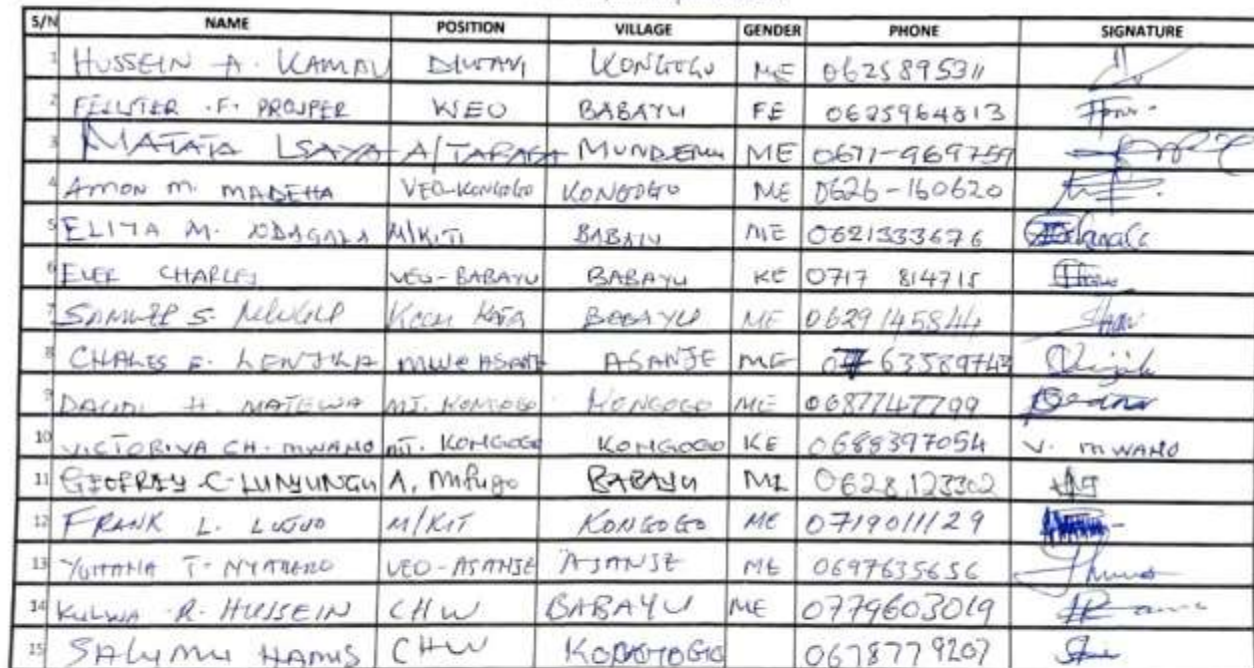 S/N NAME POSITION VILLAGE GENDER PHONE SIGNATURE
1 HUSSEIN A. KAMAU DIWANI KONGOGO ME 0625895311
2 FELISTER .F. PROSPER WEO BABAYU FE 0625964813
3 MATATA ISAYA A/TARAFA MUNDEMU ME 0671-969759
4 AMON M. MADEHA VEO-KONGOGO KONGOGO ME 0626-160620
5 ELIYA M. NDAGALA M/KITI BABAYU ME 0621333676
6 EVER CHARLES VEO-BABAYU BABAYU KE 0717 814715
7 SAMWEL S. KATA BABAYU ME 0629145844
8 CHALES E. LENJIKA MWE ASANJE ASANJE ME 63589743
9 DAUDI H. MATEWA MJ. KONGOGO KONGOGO ME 0687747799
10 VICTORIYA CH. MWAMO MT. KONGOGO KONGOGO KE 0688397054 V. MWAMO
11 GEOFRAY C. LUNYUNGU A. Mifugo BABAYU ME 0628,123302
12 FRANK L. M/KIT KONGOGO ME 0719011129
13 YOHANA T. VEO-ASANJE ASANJE ME 0697635656
14 KULWA R. HUSSEIN CHW BABAYU ME 0779603019
15 SALUMU HAMIS CHW 0678779207